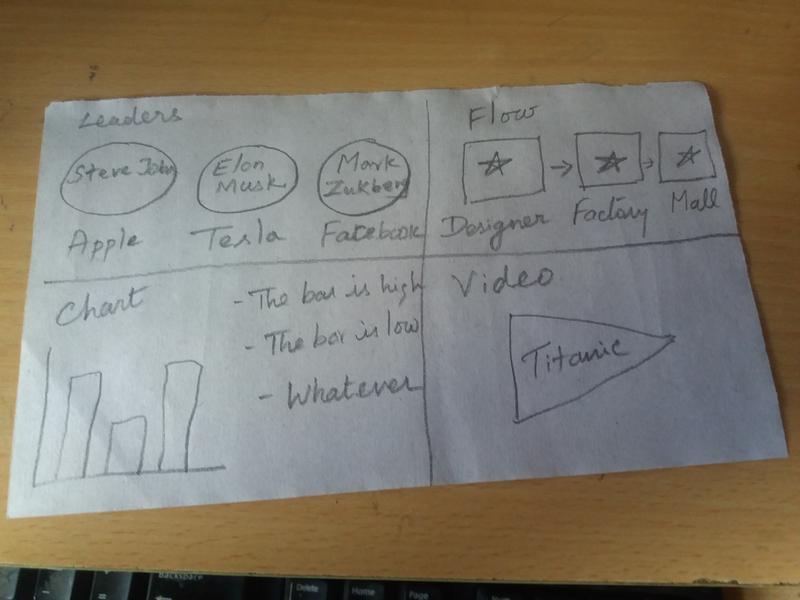 Leaders
Steve Jobs
Elon
Musk
Mark
Zukberg
Apple
Tesla
Facebook
Flow
Designer
Factory
Mall
Chart
- The bar is high
- The bar is low
- Whatever
Video
Titanic
Backspace
Delete
Home
Page